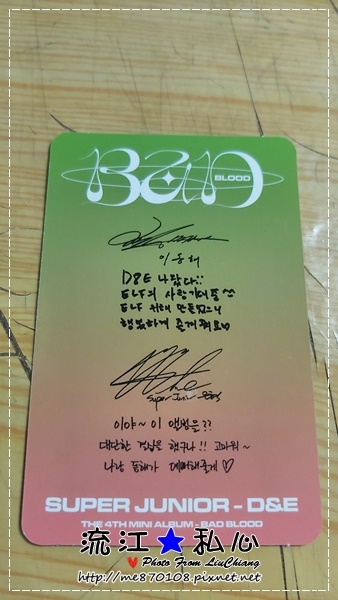 BAD
BLOOD
이동해
D&E 나왔다!!
ELF의 사랑
ELF 위해 만들었으니
행복하게 즐겨줘요♡
Super Junior
이야~ 이 앨범을??
대단한 결심을 했구나!! 고마워~
나랑 동해가 데이트해줄게 ♡
SUPER JUNIOR - D&E
THE 4TH MINI ALBUM - BAD BLOOD
流江★私心
♥Photo From LiuChiang
http://me870108.pixnet.net